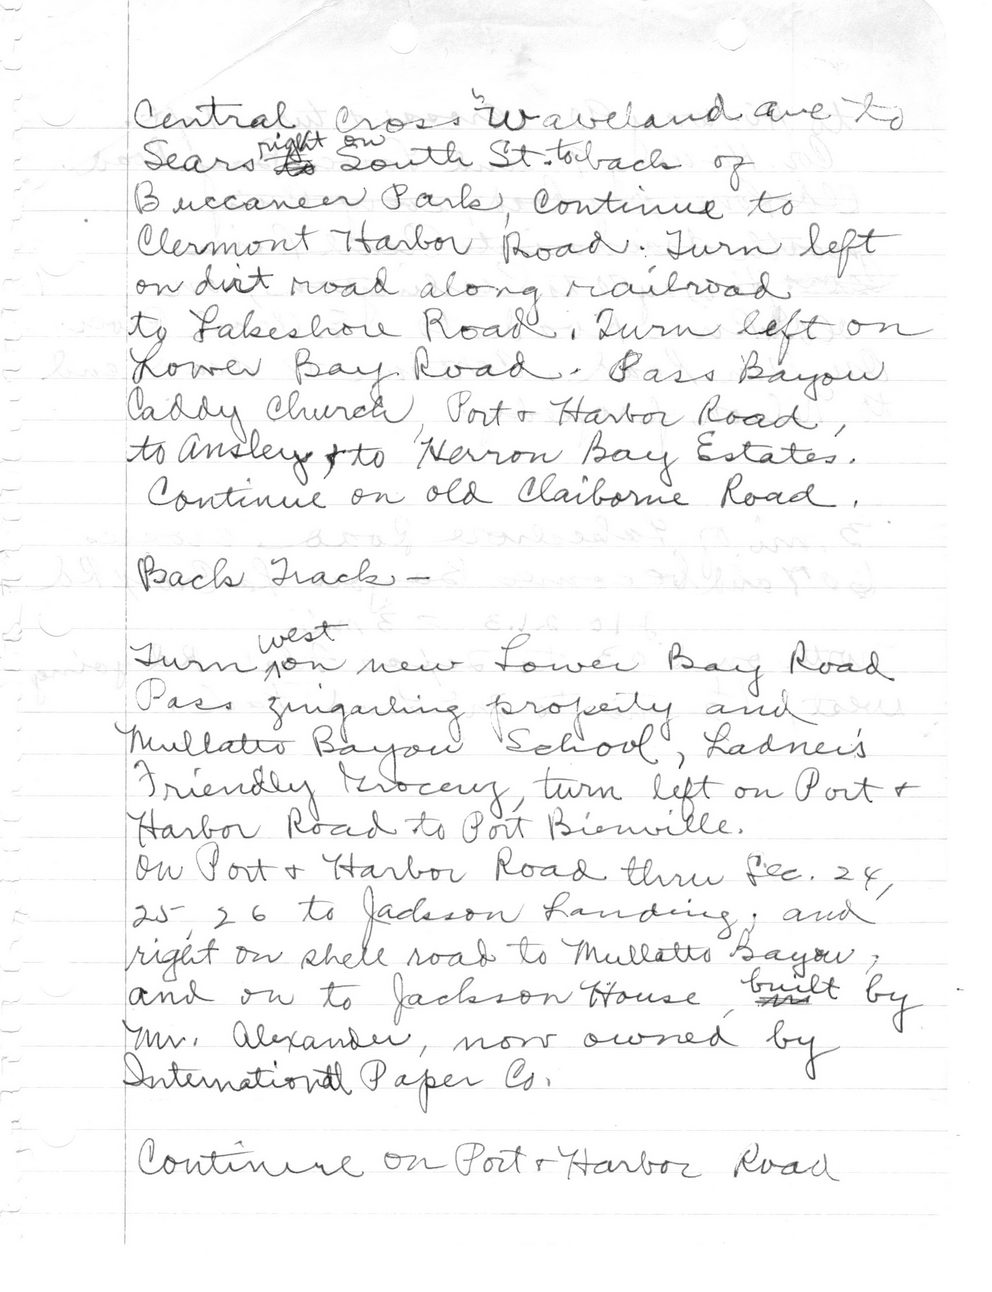 Central Cross Waveland ave to
Sears right on South St. to back of
Buccaneer Park, Continue to
Clermont Harbor Road. Turn left
on dirt road along railroad
to Lakeshore Road. Turn left on
Lower Bay Road. Pass Bayou
Caddy Church, Port & Harbor Road,
to Ansley, & to Herron Bay Estates.
Continue on old Claiborne Road.
Back Track –
Turn west on new Lower Bay Road
Pass zingarling property and
Mullatto Bayou School, Ladner's
Friendly Grocery, turn left on Port &
Harbor Road to Port Bienville.
On Port & Harbor Road thru Sec. 24,
25, 26 to Jackson Landing, and
right on shell road to Mullatto Bayou,
and on to Jackson House, built by
Mr. Alexander, now owned by
International Paper Co.
Continue on Port & Harbor Road